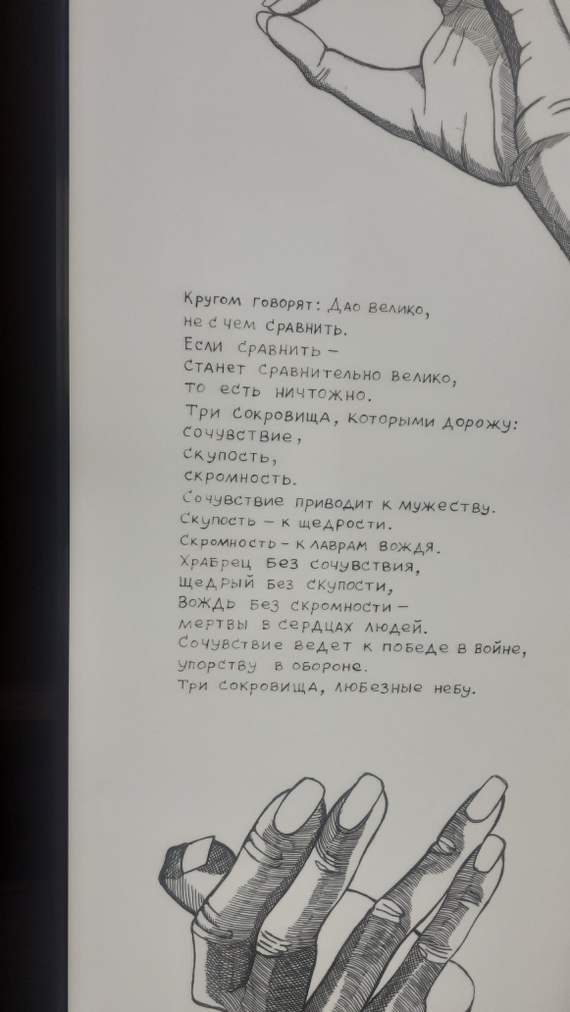 Кругом говорят: Дао велико,
не с чем сравнить.
Если сравнить –
Станет сравнительно велико,
то есть ничтожно.
Три сокровища, которыми дорожу:
Сочувствие,
Скупость,
скромность.
Сочувствие приводит к мужеству.
Скупость – к щедрости.
Скромность – к лаврам вождя.
Храбрец без сочувствия,
щедрый без скупости,
Вождь без скромности –
мертвы в сердцах людей.
Сочувствие ведет к победе в войне,
упорству в обороне.
Три сокровища, любезные небу.